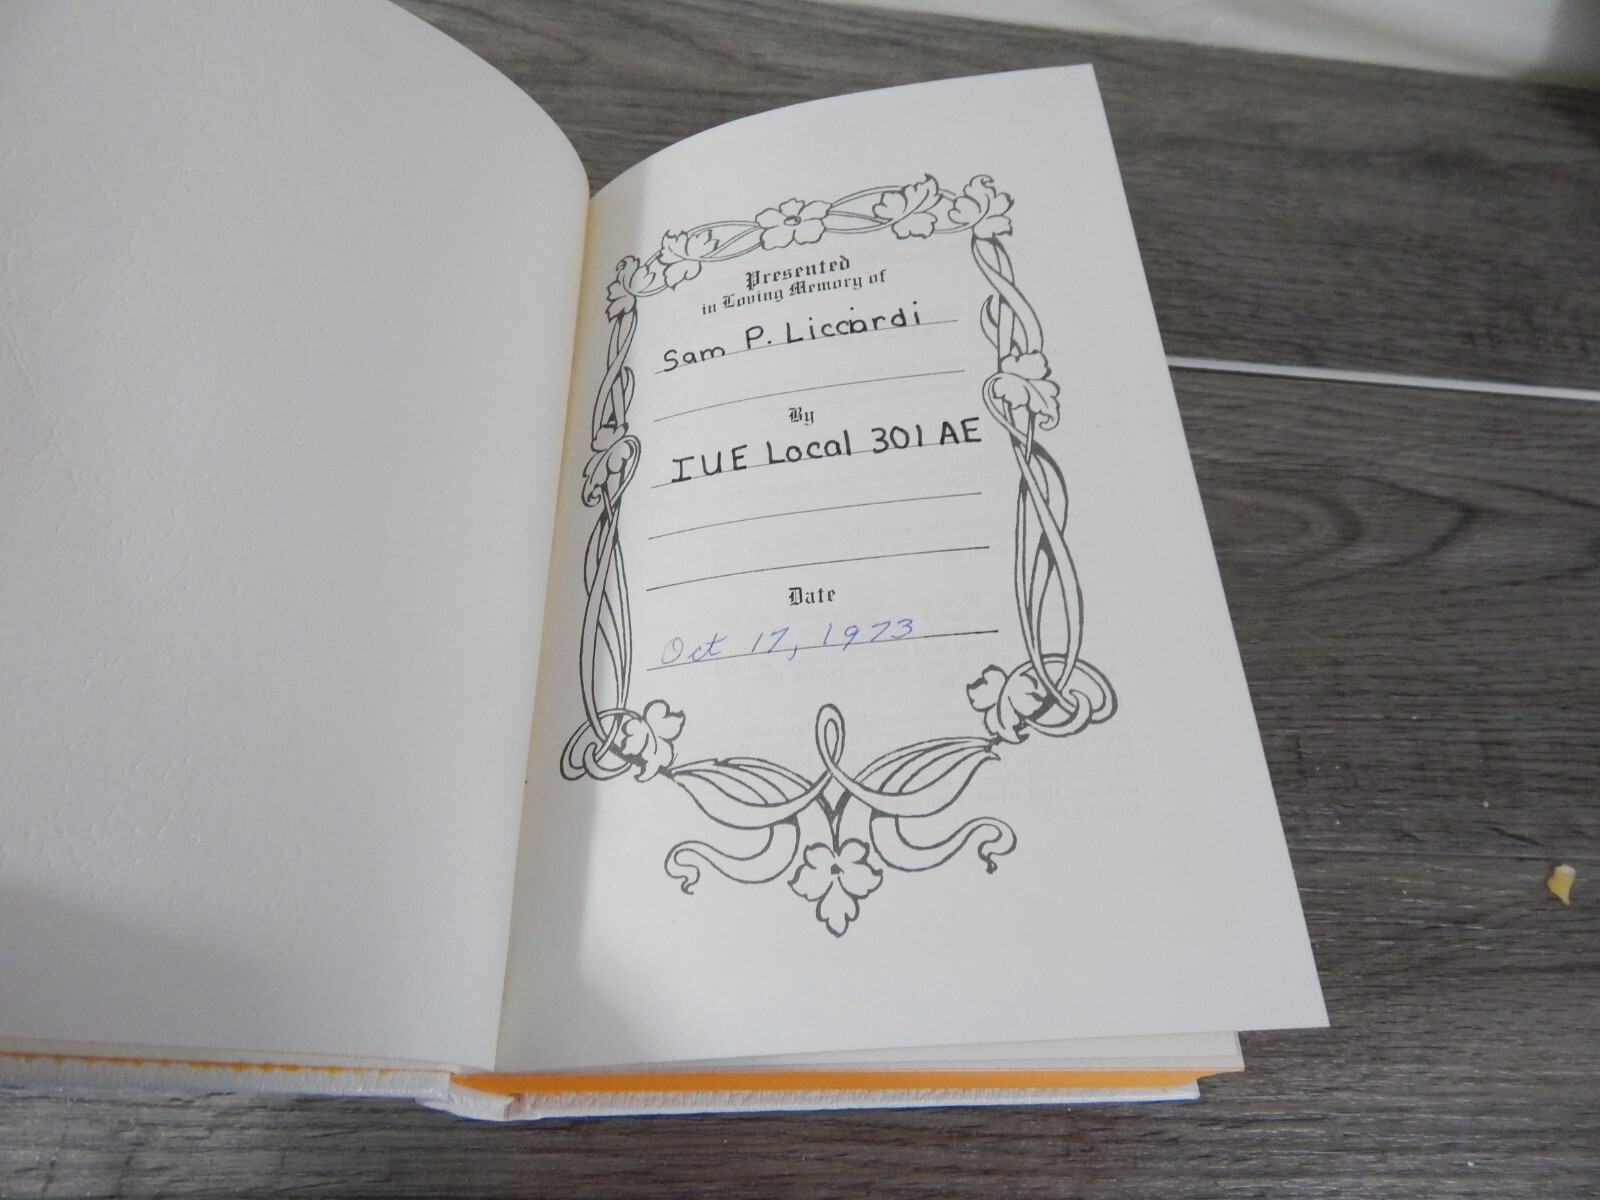 Presented
in Loving Memory of
Sam P. Licciardi
By
IUE Local 301 AE
Date
Oct 17, 1973